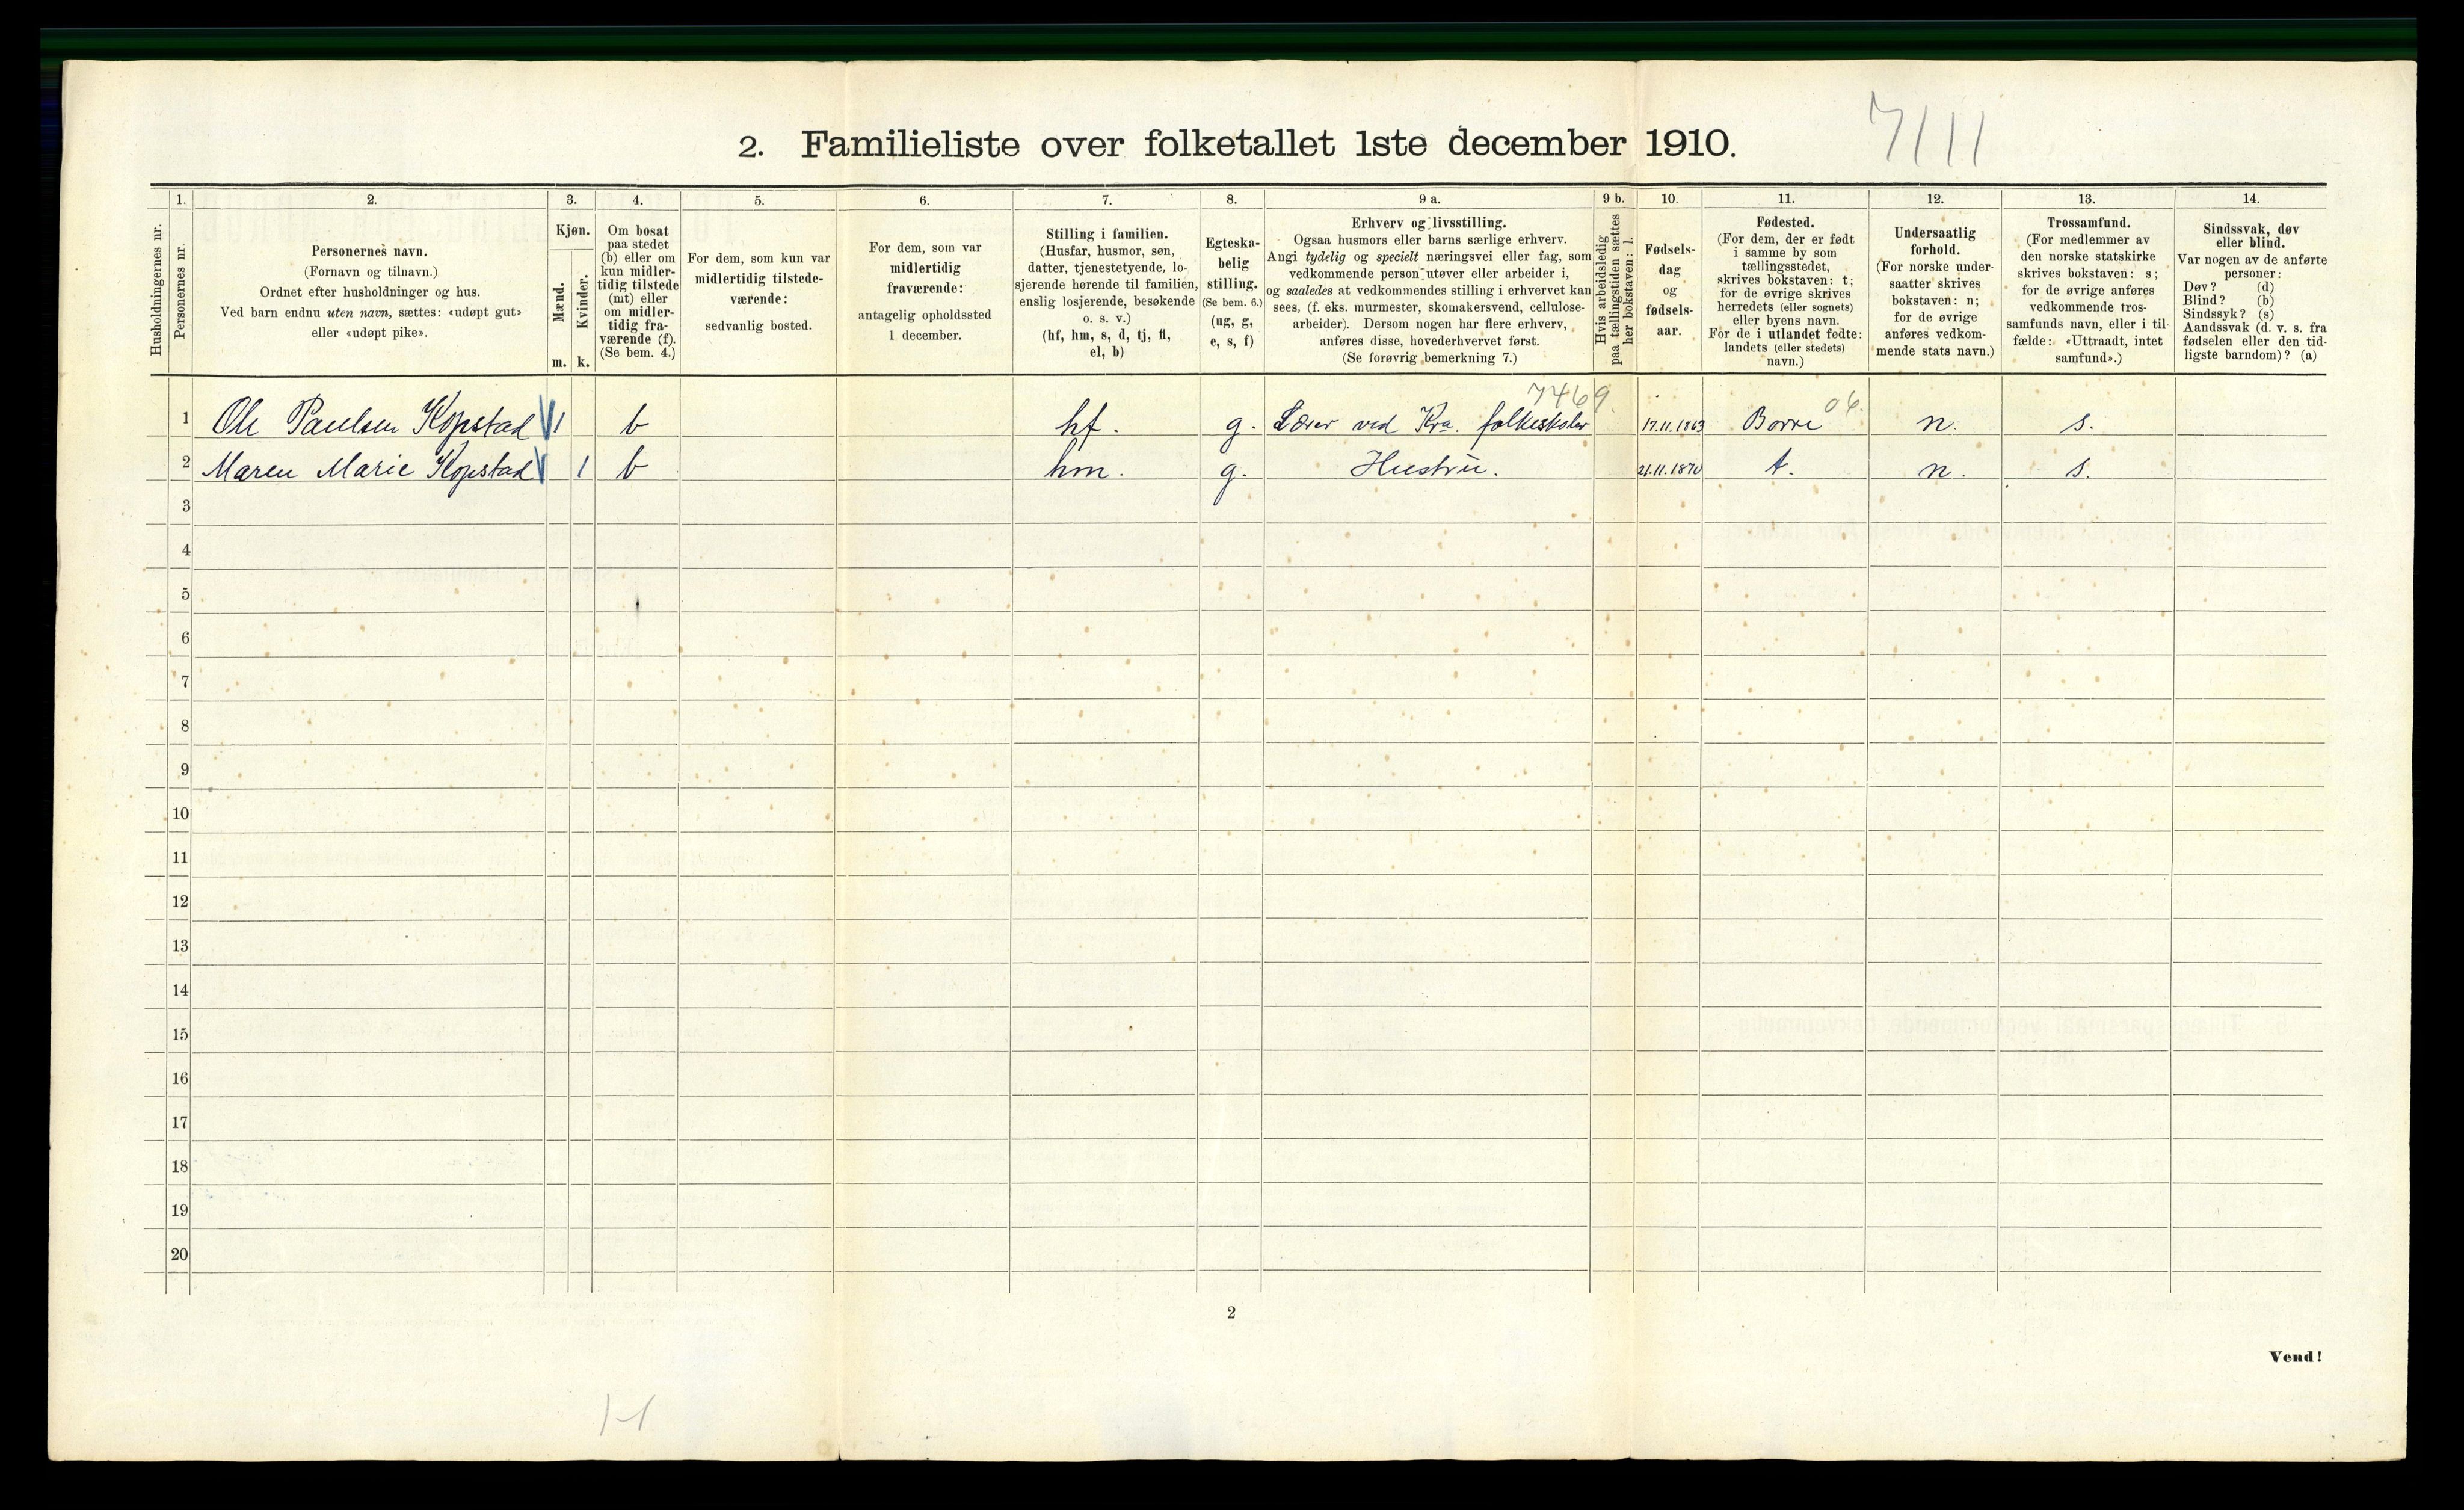 7111
2. Familieliste over folketallet 1ste december 1910.
1. 2. 3. 4. 5. 6. 7. 8. 9 a. 9 b. 10. 11. 12. 13. 14.
Husholdningernes nr.
Personernes nr.
Personernes navn.
(Fornavn og tilnavn.)
Ordnet efter husholdninger og hus.
Ved barn endnu uten navn, sættes: «udøpt gut»
eller «udøpt pike».
Kjøn.
Mænd.
Kvinder.
m. k.
Om bosat
paa stedet
(b) eller om
kun midler-
tidig tilstede
(mt) eller
om midler-
tidig fra-
værende (f).
(Se bem. 4.)
For dem, som kun var
midlertidig tilstede-
værende:
sedvanlig bosted.
For dem, som var
midlertidig
fraværende:
antagelig opholdssted
1 december.
Stilling i familien.
(Husfar, husmor, søn,
datter, tjenestetyende, lo-
sjerende hørende til familien,
enslig losjerende, besøkende
o. s. v.)
(hf, hm, s, d, tj, fl,
el, b)
Egteska-
belig
stilling.
(Se bem. 6.)
(ug, g,
e, s, f)
Erhverv og livsstilling.
Ogsaa husmors eller barns særlige erhverv.
Angi tydelig og specielt næringsvei eller fag, som
vedkommende person utøver eller arbeider i,
og saaledes at vedkommendes stilling i erhvervet kan
sees, (f. eks. murmester, skomakersvend, cellulose-
arbeider). Dersom nogen har flere erhverv,
anføres disse, hovederhvervet først.
(Se forøvrig bemerkning 7.)
Hvis arbeidsledig
paa tællingstiden sættes
her bokstaven: l.
Fødsels-
dag
og
fødsels-
aar.
Fødested.
(For dem, der er født
i samme by som
tællingsstedet,
skrives bokstaven: t;
for de øvrige skrives
herredets (eller sognets)
eller byens navn.
For de i utlandet fødte:
landets (eller stedets)
navn.)
Undersaatlig
forhold.
(For norske under-
saatter skrives
bokstaven: n;
for de øvrige
anføres vedkom-
mende stats navn.)
Trossamfund.
(For medlemmer av
den norske statskirke
skrives bokstaven: s;
for de øvrige anføres
vedkommende tros-
samfunds navn, eller i til-
fælde: «Uttraadt, intet
samfund».)
Sindssvak, døv
eller blind.
Var nogen av de anførte
personer:
Døv? (d)
Blind? (b)
Sindssyk? (s)
Aandssvak (d. v. s. fra
fødselen eller den tid-
ligste barndom)? (a)
7469 06.
1 Ole Paulsen Kopstad 1 b hf. g. Lærer ved Kra. folkeskoler 17.11.1863 Borre n. s.
2 Maren Marie Kopstad 1 b hm. g. Hustru. 21.11.1870 t. n. s.
3
4
5
6
7
8
9
10
11
12
13
14
15
16
17
18
19
20
2
Vend!
1-1